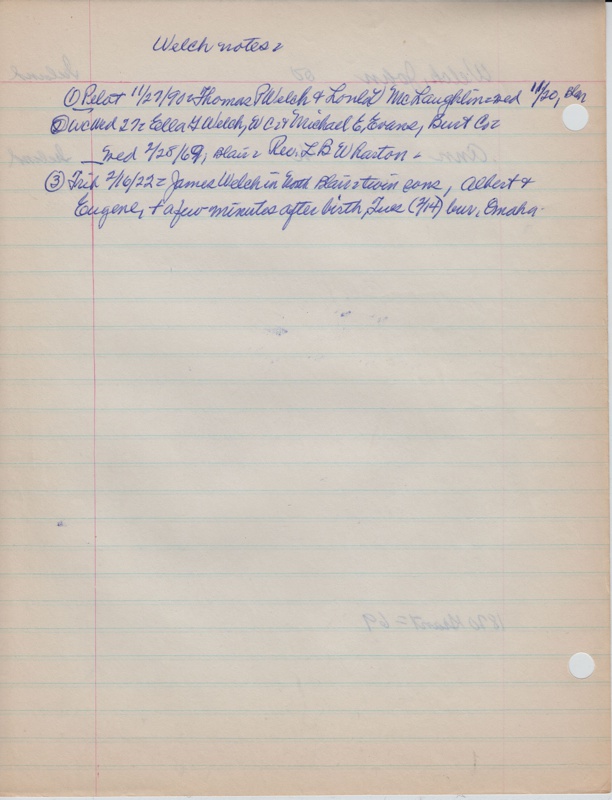 Welch notes =
① Pilot 11/27/90 = Thomas P Welch & McLaughlin = wed 11/20, Blair
② WC wed 27 = Ella G Welch, W Co & Michael E, Evans, Burt Co =
wed 2/28/69, Blair = Rev. L B Wharton =
③ Trib 2/16/22 = James Welch in Blair = twin sons, Albert &
Eugene, + a few minutes after birth, Tues (2/14) bur, Omaha.
1870 = 69